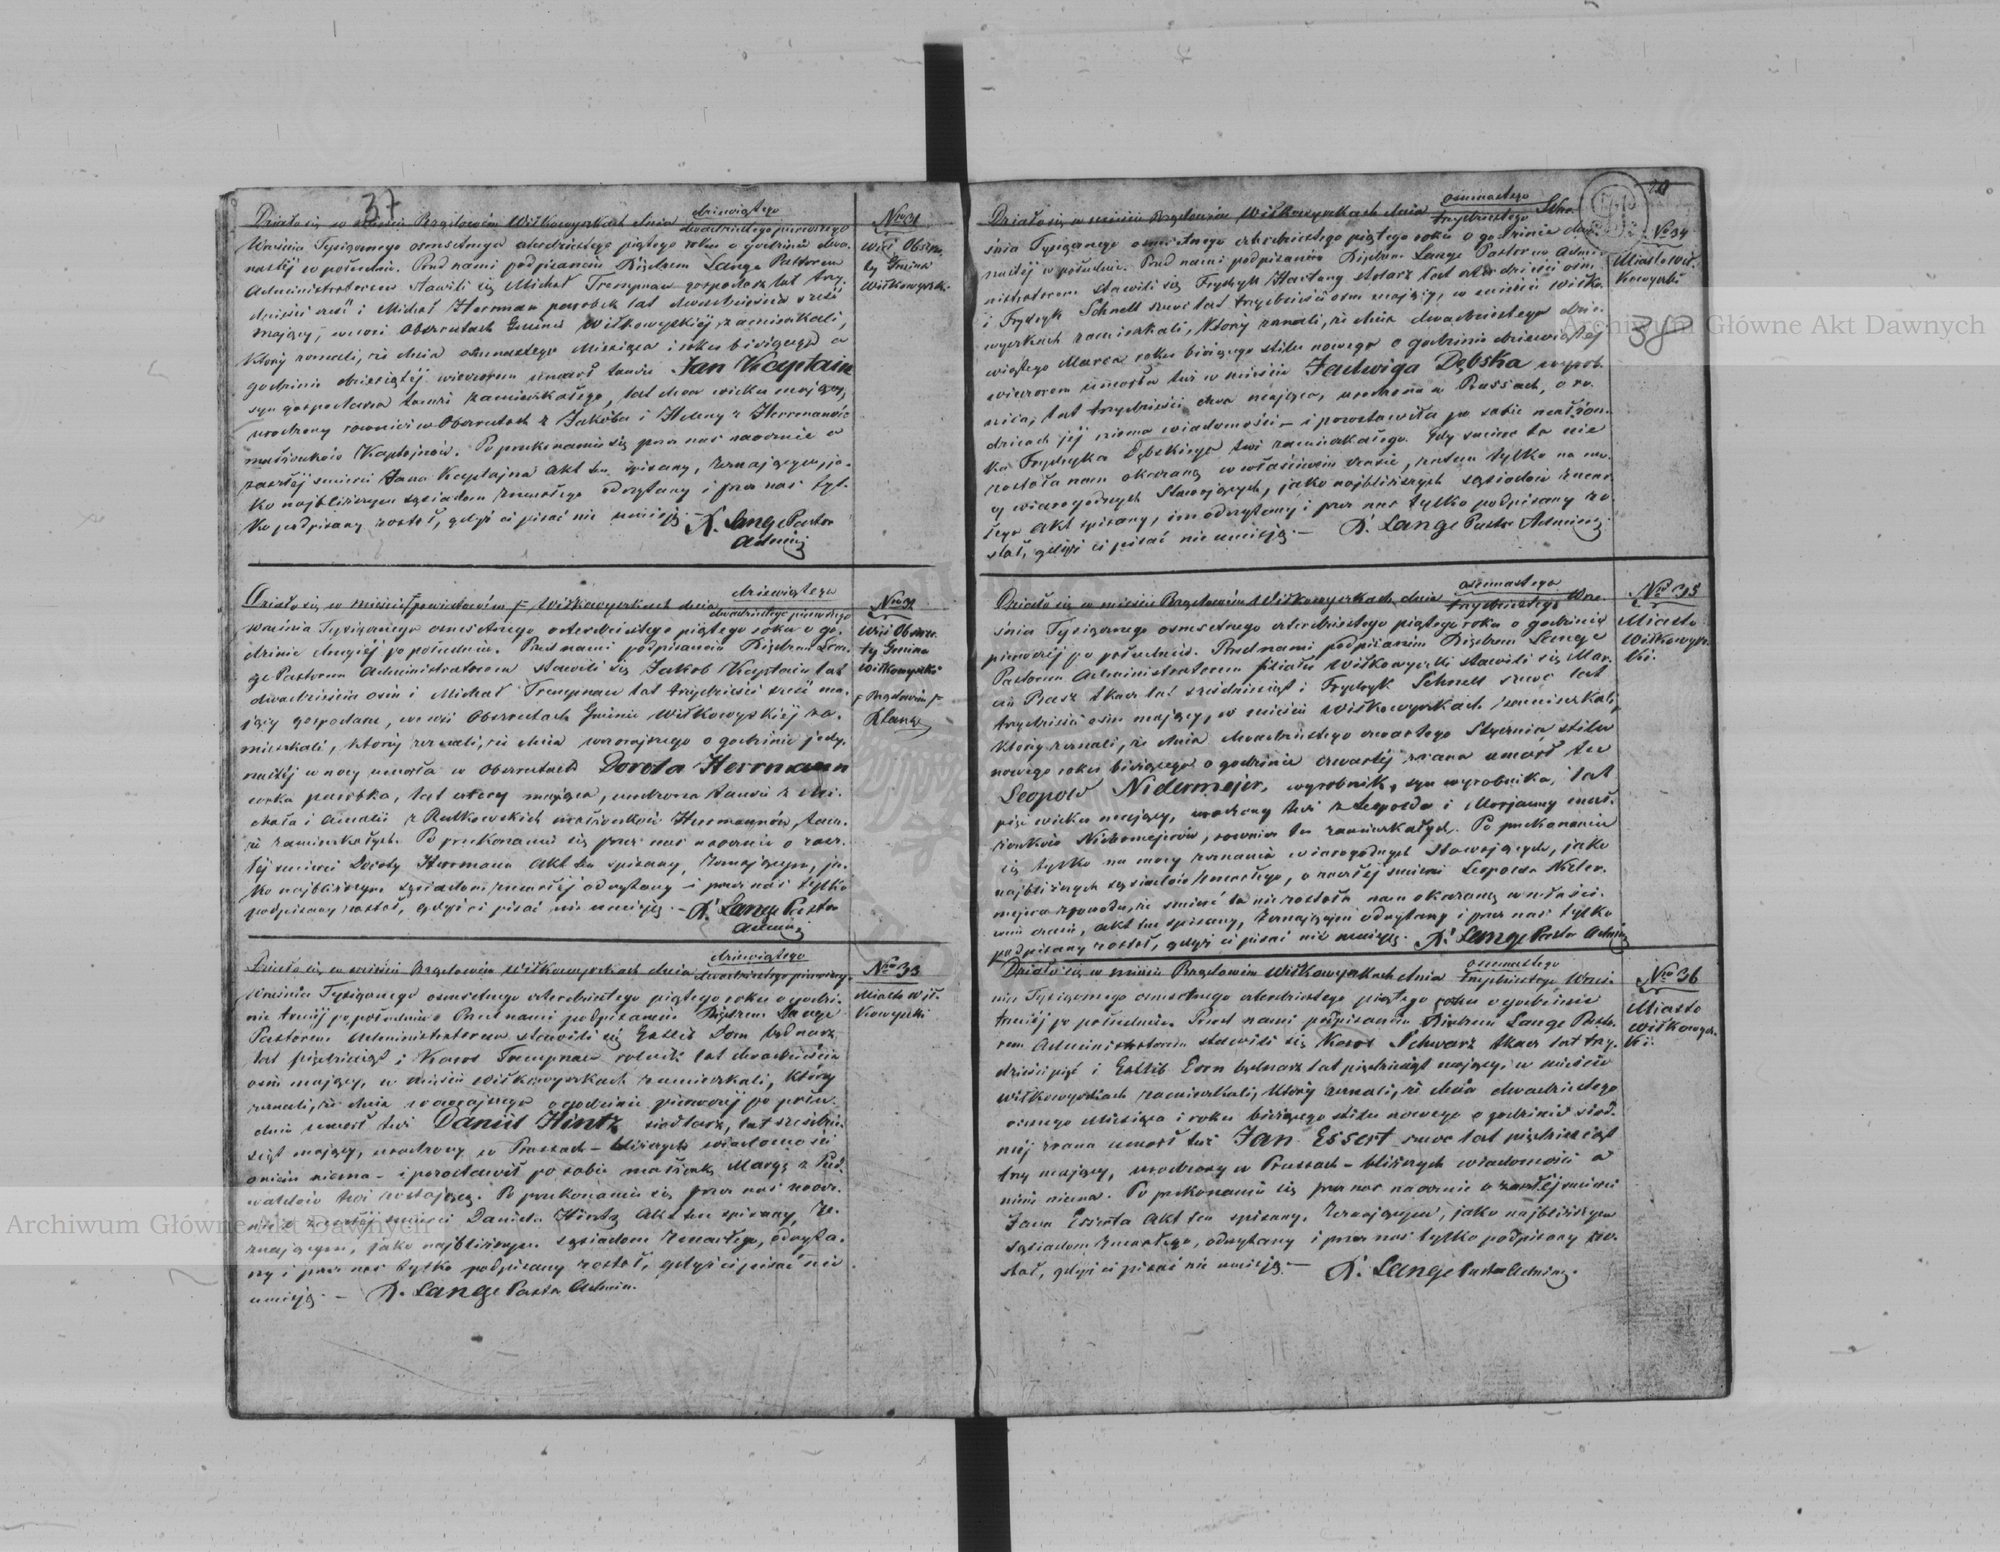 37
Działo się w mieście Rządowém Wiłkowyszkach dnia dziewiątego
dwudziestego pierwszego
Września Tysiącznego osmsetnego czterdziestego piątego roku o godzinie dwu-
nastéj w południe. Przed nami podpisanym Księdzem Lange Pastorem
Administratorem stawili się Michał Trempnau gospodarz lat trzy-
dzieści sześć i Michał Herrman parobek lat dwadzieścia sześć
mający, we wsi Obszrutach Gminie Wiłkowyskiéj zamieszkali,
którzy zeznali, że dnia osmnastego Miesiąca i roku bieżącego o
godzinie dziesiątéj wieczorem umarł tamże Jan Kaptain
syn gospodarza tamże zamieszkałego, lat dwa wieku mający,
urodzony również w Obszrutach z Jakóba i Heleny z Herrmanów
małżonków Kaptejnów. Po przekonaniu się przez nas naocznie o
zaszłéj śmierci Jana Kaptajna Akt ten spisany, zeznającym, ja-
ko najbliższym sąsiadom zmarłego odczytany i przez nas tyl-
ko podpisany został, gdyż ci pisać nie umieją. - D. Lange Pastor
Admin:
Nro 31
Wieś Obszru-
ty Gmina
Wiłkowyszki
Działo się w mieście F powiatowém F Wiłkowyszkach dnia dziewiątego
dwudziestego pierwszego
Września Tysiącznego osmsetnego czterdziestego piątego roku o go-
dzinie drugiéj po południu. Przed nami podpisanym Księdzem Lan-
ge Pastorem Administratorem stawili się Jakób Kaptain lat
dwadzieścia osm i Michał Trempnau lat trzydzieści sześć ma-
jący gospodarze, we wsi Obszrutach Gminie Wiłkowyskiéj za-
mieszkali, którzy zeznali, że dnia wczorajszego o godzinie jedy-
nastéj w nocy umarła w Obszrutach Dorota Herrmann
córka parobka, lat cztery mająca, urodzona tamże z Mi-
chała i Amalii z Rutkowskich małżonków Herrmannów, tam-
że zamieszkałych. Po przekonaniu się przez nas naocznie o zasz-
łéj śmierci Doroty Herrmann Akt ten spisany, zeznającym, ja-
ko najbliższym sąsiadom zmarłéj odczytany i przez nas tylko
podpisany został, gdyż ci pisać nie umieją. - D. Lange Pastor
Admin:
Nro 32
Wieś Obszru-
ty Gmina
Wiłkowyszki
F Rządowém F
D Lange
Działo się w mieście Rządowém Wiłkowyszkach dnia dziewiątego
dwudziestego pierwszego
Września Tysiącznego osmsetnego czterdziestego piątego roku o godzi-
nie trzeciéj po południu. Przed nami podpisanym Księdzem Lange
Pastorem Administratorem stawili się Gotlib Dorn bednarz
lat pięćdziesiąt i Karol Trempnau rolnik lat dwadzieścia
osm mający, w mieście Wiłkowyszkach zamieszkali, którzy
zeznali, że dnia wczorajszego o godzinie pierwszej po połu-
dniu umarł tuż Daniel Hintz siodlarz, lat sześćdzie-
siąt mający, urodzony w Prusach - bliższych wiadomości
o nim niema - i pozostawił po sobie małżonkę Maryę z
waldów tuż zostającą. Po przekonaniu się przez nas naocz-
nie o zaszłéj śmierci Daniela Hintz Akt ten spisany, ze-
znającym, jako najbliższym sąsiadom zmarłego, odczyta-
ny i przez nas tylko podpisany został, gdyż ci pisać nie
umieją. - D. Lange Pastor Admin.
Nro 33
Miasto Wił-
kowyszki
Działo się w mieście Rządowém Wiłkowyszkach dnia osmnastego
trzydziestego Wrze-
śnia Tysiącznego osmsetnego czterdziestego piątego roku o godzinie dwu-
nastéj w południe. Przed nami podpisanym Księdzem Lange Pastorem Admi-
nistratorem stawili się Frydryk Hartung stolarz lat czterdzieści osm
i Frydryk Schnell szewc lat trzydzieści osm mający, w mieście Wiłko-
wyszkach zamieszkali, którzy zeznali, że dnia dwudziestego dzie-
wiątego Marca roku bieżącego stilu nowego o godzinie dziewiątéj
wieczorem umarła tuż w mieście Jadwiga Dębska wyrob-
nica, lat trzydzieści dwa mająca, urodzona w Prusach, o ro-
dzicach jéj niema wiadomości - i pozostawiła po sobie małżon-
ka Frydryka Dębskiego tuż zamieszkałego. Gdy śmierć ta nie
została nam okazaną w właściwém czasie, zatem tylko na mo-
cy wiarogodnych Stawających, jako najbliższych sąsiadów zmar-
łego Akt spisany, im odczytany i przez nas tylko podpisany zo-
stał, gdyż ci pisać nie umieją. - D. Lange Pastor Admin:
Nro 34
Miasto Wił-
kowyszki
38
Działo się w mieście Rządowém Wiłkowyszkach dnia osmnastego
trzydziestego Wrze-
śnia Tysiącznego osmsetnego czterdziestego piątego roku o godzinie
pierwszéj po południu. Przed nami podpisanym Księdzem Lange
Pastorem Administratorem filiału Wiłkowyszki stawili się Mar-
cin Prasz tkacz lat sześćdziesiąt i Frydryk Schnell szewc lat
trzydzieści osm mający, w mieście Wiłkowyszkach zamieszkali,
którzy zeznali, że dnia dwudziestego czwartego Stycznia stilu
nowego roku bieżącego o godzinie czwartéj zrana umarł tu
Leopold Nidermejer, wyrobnik, syn wyrobnika, lat
pięć wieku mający, urodzony tuż z Leopolda i Maryanny mał-
żonków Nidermejerów, również tu zamieszkałych. Po przekonaniu
się tylko na mocy zeznania wiarogodnych Stawających, jako
najbliższych sąsiadów zmarłego, o zaszłéj śmierci Leopolda Nider-
mejera z powodu, że śmierć ta nie została nam okazaną w właści-
wém czasie, akt ten spisany, zeznającym odczytany i przez nas tylko
podpisany został, gdyż ci pisać nie umieją. D. Lange Pastor Admin:
Nro 35
Miasto
Wiłkowysz-
ki.
Działo się w mieście Rządowém Wiłkowyszkach dnia osmnastego
trzydziestego Wrześ-
nia Tysiącznego osmsetnego czterdziestego piątego roku o godzinie
trzeciéj po południu. Przed nami podpisanym Księdzem Lange Pasto-
rem Administratorem stawili się Karol Schwarz tkacz lat trzy-
dzieści pięć i Gotlib Dorn bednarz lat pięćdziesiąt mający, w mieście
Wiłkowyszkach zamieszkali, którzy zeznali, że dnia dwudziestego
osmego Miesiąca i roku bieżącego stilu nowego o godzinie siód-
méj zrana umarł tuż Jan Essert szewc lat pięćdziesiąt
trzy mający, urodzony w Prusach - bliższych wiadomości o
nim niema. Po przekonaniu się przez nas naocznie o zaszłéj śmierci
Jana Esserta Akt ten spisany, zeznającym, jako najbliższym
sąsiadom zmarłego, odczytany i przez nas tylko podpisany zo-
stał, gdyż ci pisać nie umieją. - D. Lange Pastor Admin:
Nro 36
Miasto
Wiłkowysz-
ki.
Archiwum Główne Akt Dawnych
Archiwum Główne Akt Dawnych